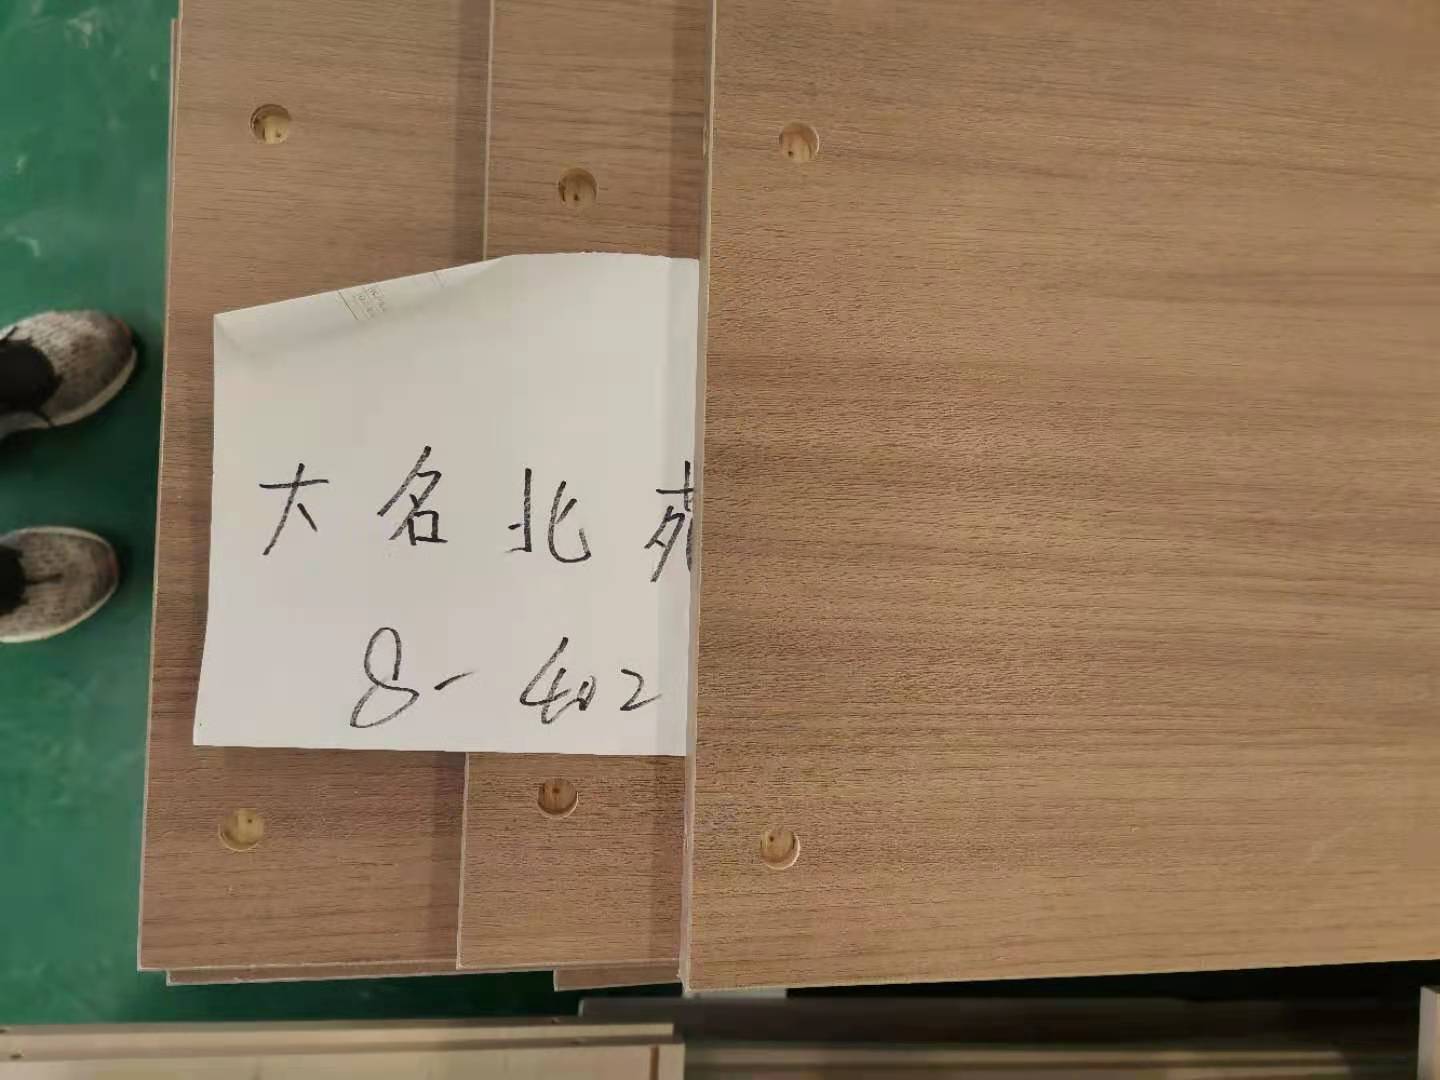 大名北苑
8-402